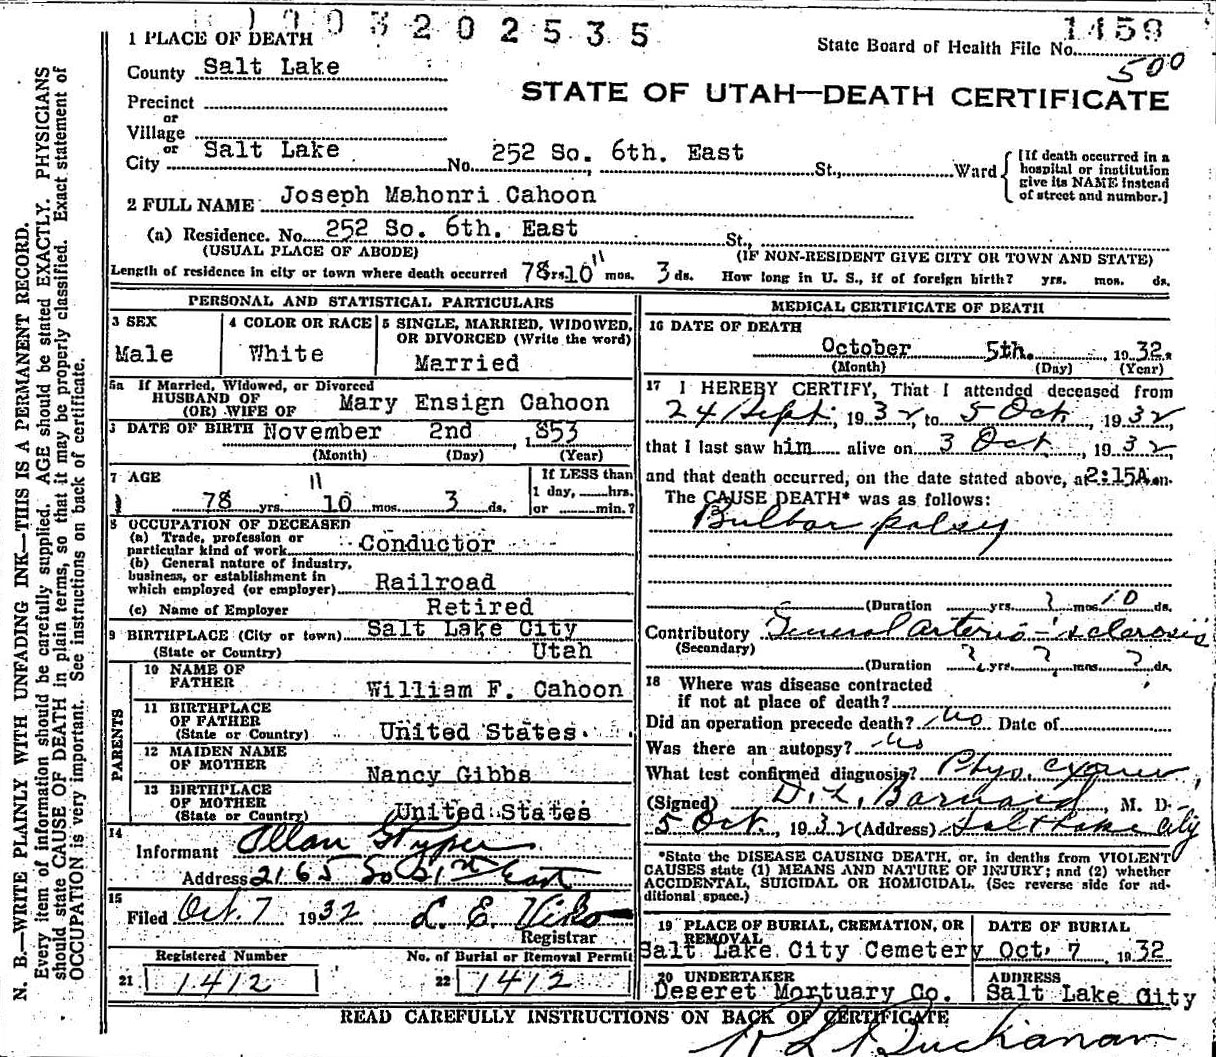 1 PLACE OF DEATH
320 2535
1459
State Board of Health File No.
500
County Salt Lake
STATE OF UTAH—DEATH CERTIFICATE
Precinct
or
Village
or
City Salt Lake No. 252 So. 6th. East St., Ward
[If death occurred in a hospital or institution give its NAME instead of street and number.]
2 FULL NAME Joseph Mahonri Cahoon
(a) Residence. No. 252 So. 6th. East St.,
(USUAL PLACE OF ABODE) (IF NON-RESIDENT GIVE CITY OR TOWN AND STATE)
Length of residence in city or town where death occurred 78 yrs. 10 11 mos. 3 ds. How long in U. S., if of foreign birth? yrs. mos. ds.
PERSONAL AND STATISTICAL PARTICULARS
3 SEX
Male
4 COLOR OR RACE
White
5 SINGLE, MARRIED, WIDOWED,
OR DIVORCED (Write the word)
Married
5a If Married, Widowed, or Divorced
HUSBAND OF
(OR) WIFE OF Mary Ensign Cahoon
DATE OF BIRTH November 2nd , 1853
(Month) (Day) (Year)
7 AGE
78 yrs. 11 10 mos. 3 ds.
If LESS than
1 day, hrs.
or min.?
8 OCCUPATION OF DECEASED
(a) Trade, profession or
particular kind of work Conductor
(b) General nature of industry,
business, or establishment in
which employed (or employer) Railroad
(c) Name of Employer Retired
9 BIRTHPLACE (City or town) Salt Lake City
(State or Country) Utah
PARENTS
10 NAME OF
FATHER William F. Cahoon
11 BIRTHPLACE
OF FATHER
(State or Country) United States
12 MAIDEN NAME
OF MOTHER Nancy Gibbs
13 BIRTHPLACE
OF MOTHER
(State or Country) United States
14
Informant Allan
Address 2165 So 21st East
15
Filed Oct. 7 1932 L. E. Viko
Registrar
Registered Number No. of Burial or Removal Permit
21 1412 22 1412
MEDICAL CERTIFICATE OF DEATH
16 DATE OF DEATH
October 5th. , 1932.
(Month) (Day) (Year)
17 I HEREBY CERTIFY, That I attended deceased from
24 Sept, 1932, to 5 Oct, 1932
that I last saw him alive on 3 Oct, 1932,
and that death occurred, on the date stated above, at 2:15A m.
The CAUSE DEATH* was as follows:
Bulbar palsy
(Duration yrs. ? mos. 10 ds.
Contributory General Arterio-sclerosis
(Secondary)
(Duration ? yrs. ? mos. ? ds.
18 Where was disease contracted
if not at place of death?
Did an operation precede death? No Date of
Was there an autopsy? No
What test confirmed diagnosis? Phys. exam
(Signed) D. L. Barnard, M. D.
5 Oct., 1932 (Address) Salt Lake City
*State the DISEASE CAUSING DEATH, or, in deaths from VIOLENT
CAUSES state (1) MEANS AND NATURE OF INJURY; and (2) whether
ACCIDENTAL, SUICIDAL OR HOMICIDAL. (See reverse side for ad-
ditional space.)
19 PLACE OF BURIAL, CREMATION, OR
REMOVAL
Salt Lake City Cemetery
DATE OF BURIAL
Oct. 7 1932
20 UNDERTAKER
Deseret Mortuary Co.
ADDRESS
Salt Lake City
READ CAREFULLY INSTRUCTIONS ON BACK OF CERTIFICATE
Buchanan
N. B.—WRITE PLAINLY WITH UNFADING INK—THIS IS A PERMANENT RECORD.
Every item of information should be carefully supplied. AGE should be stated EXACTLY. PHYSICIANS
should state CAUSE OF DEATH in plain terms, so that it may be properly classified. Exact statement of
OCCUPATION is very important. See instructions on back of certificate.